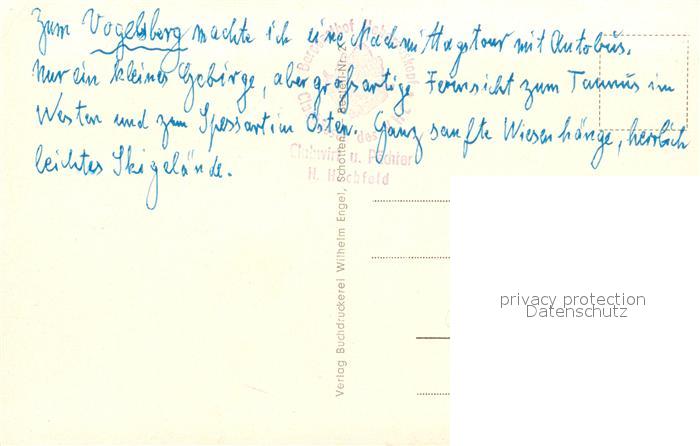 Zum Vogelsberg machte ich eine Nachmittagstour mit Autobus.
Nur ein kleines Gebirge, aber großartige Fernsicht zum Taunus im
Westen und zum Spessart im Osten. Ganz sanfte Wiesenhänge, herrlich
leichtes Skigelände.
Clubwirt u. Pächter
H. Hochfeld
Verlag Buchdruckerei Wilhelm Engel, Schotten
Bestell-Nr.
privacy protection
Datenschutz